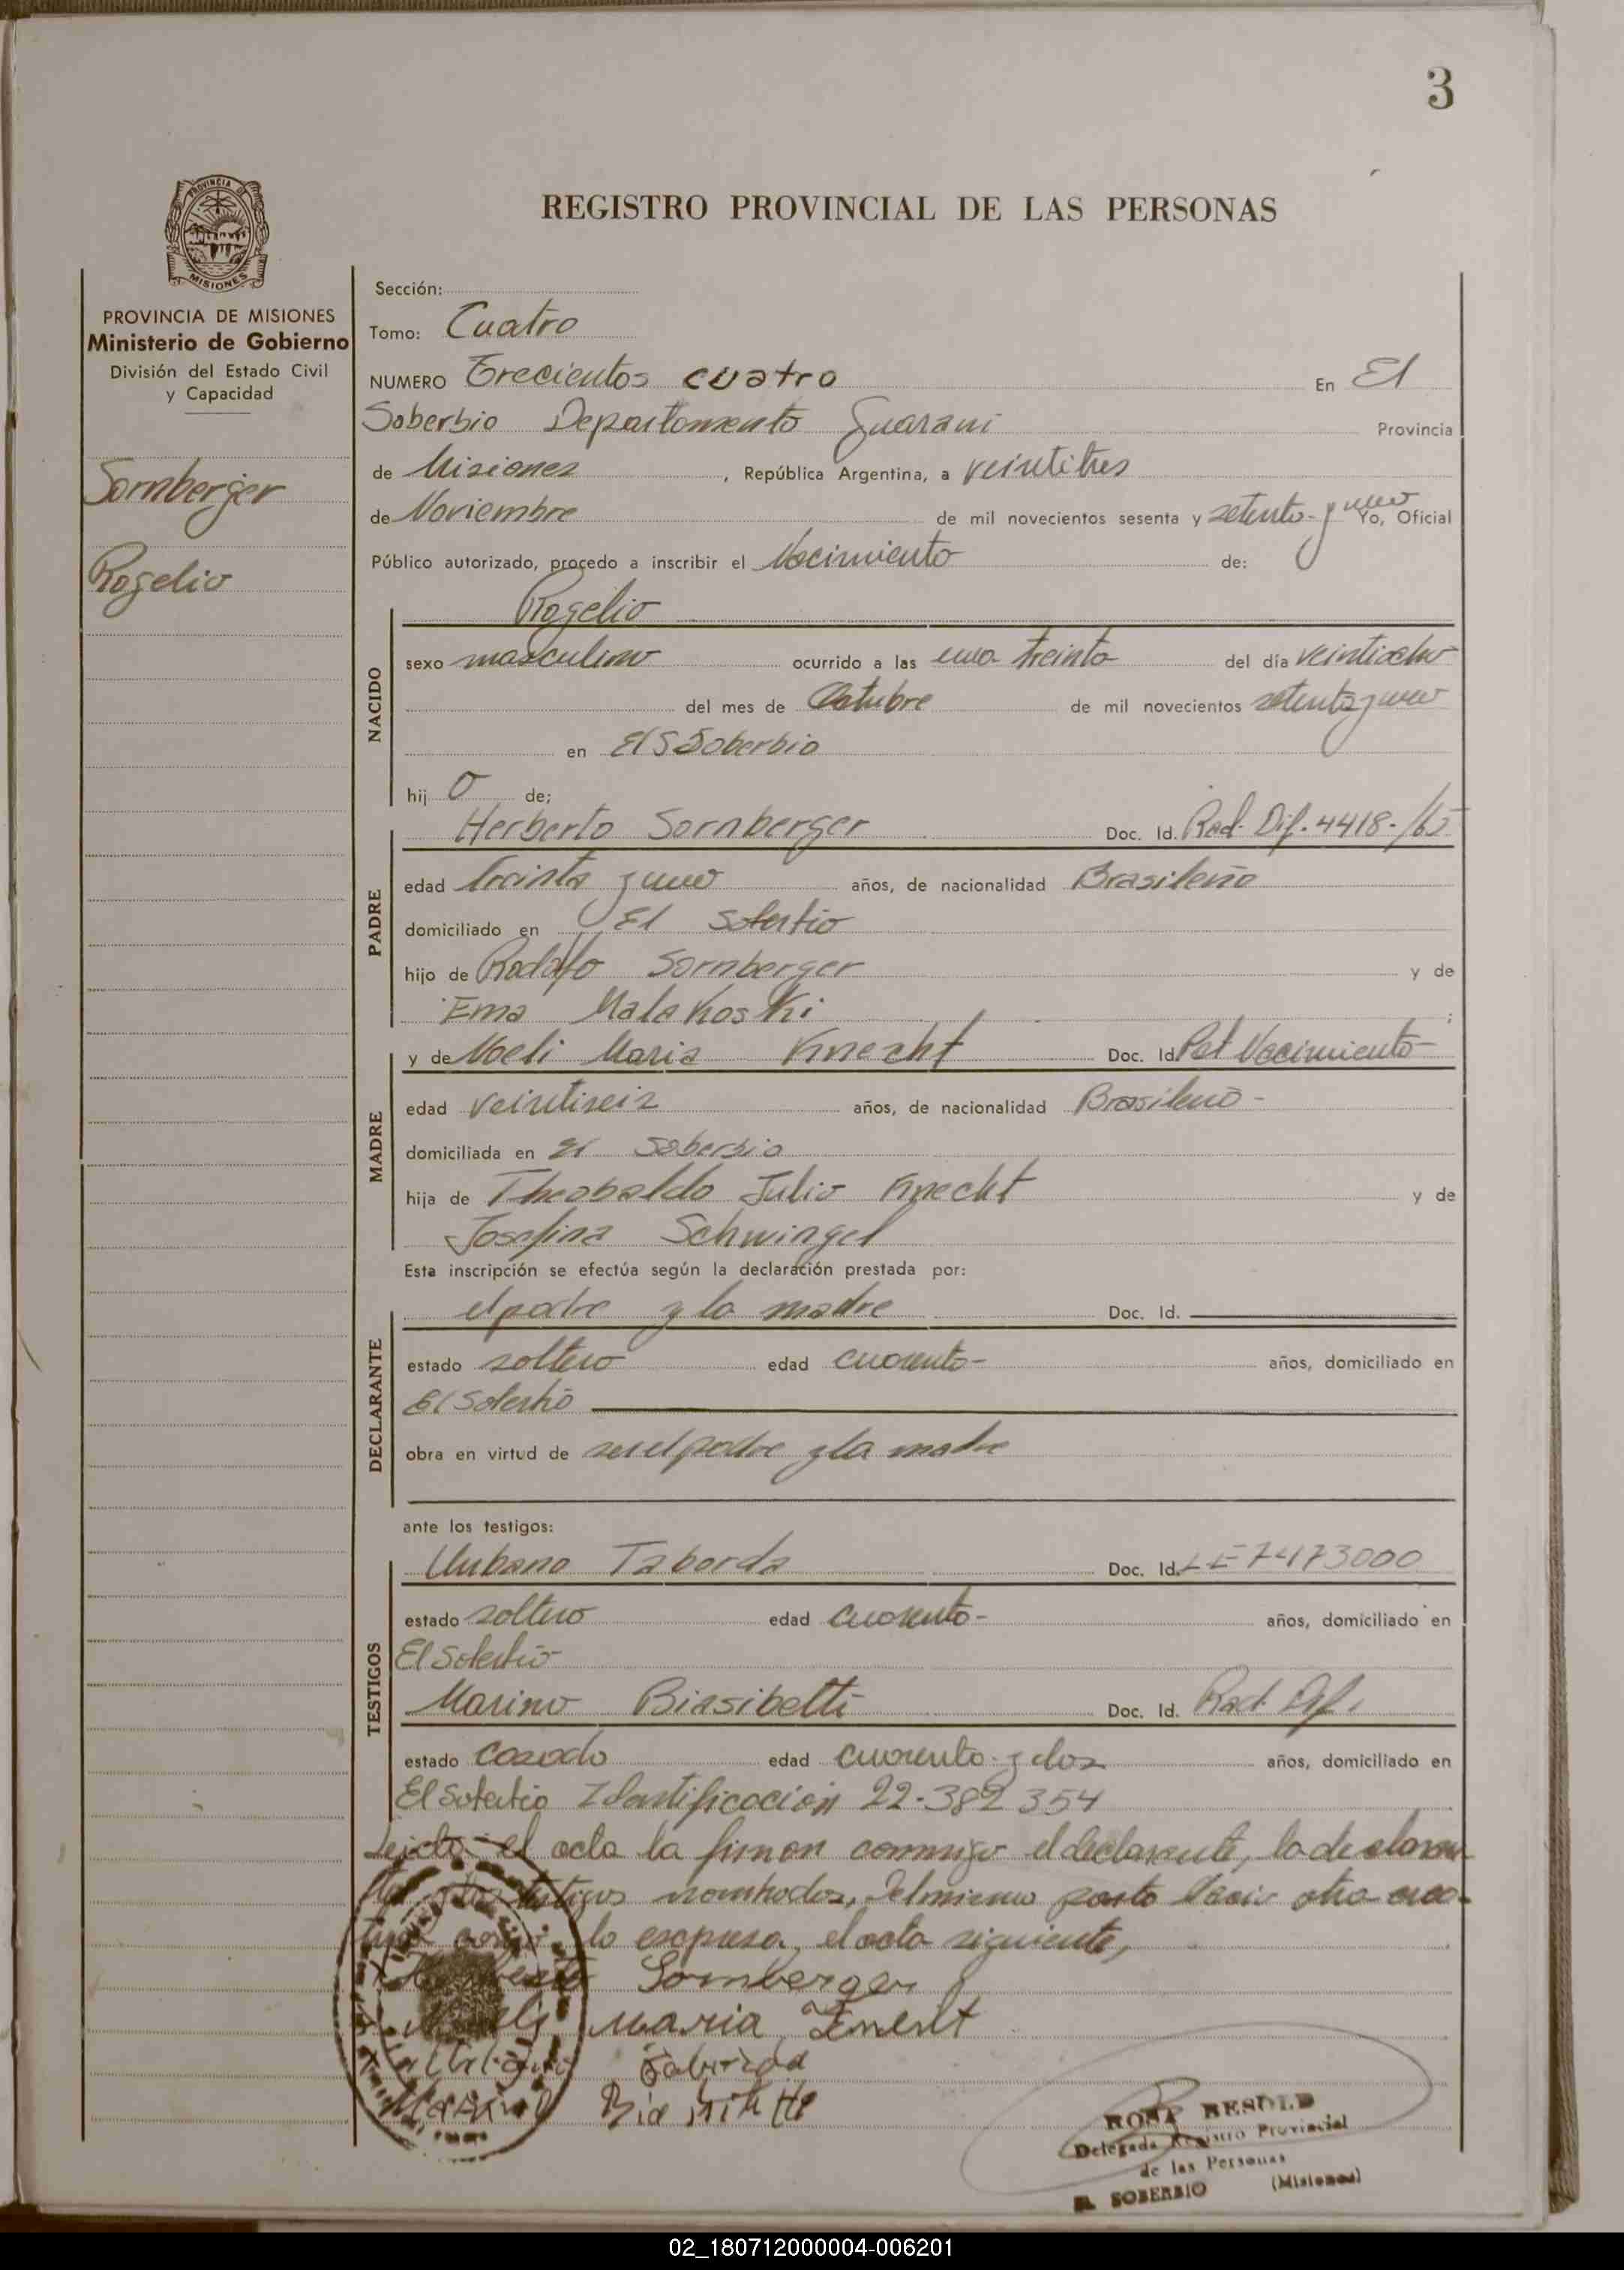 3
PROVINCIA DE
MISIONES
REGISTRO PROVINCIAL DE LAS PERSONAS
PROVINCIA DE MISIONES
Ministerio de Gobierno
División del Estado Civil
y Capacidad
Sornberger
Rogelio
Sección:
Tomo: Cuatro
NUMERO Trecientos cuatro En El
Soberbio Departamento Guarani Provincia
de Misiones, República Argentina, a veintitres
de Noviembre de mil novecientos sesenta y setenta y uno Yo, Oficial
Público autorizado, procedo a inscribir el Nacimiento de:
Rogelio
NACIDO
sexo masculino ocurrido a las una treinta del día veintiocho
del mes de Octubre de mil novecientos setenta y uno
en El S Soberbio
hij o de;
Herberto Sornberger Doc. Id. Rad. Dif. 4418-/65
PADRE
edad treinta y uno años, de nacionalidad Brasileño
domiciliado en El Soberbio
hijo de Rodolfo Sornberger y de
Ema Malakoski ;
y de Noeli Maria Knecht Doc. Id. Nacimiento
MADRE
edad veintiseis años, de nacionalidad Brasileño -
domiciliada en El Soberbio
hija de Theobaldo Julio Knecht y de
Josefina Schwingel
Esta inscripción se efectúa según la declaración prestada por:
el padre y la madre Doc. Id.
DECLARANTE
estado soltero edad cuarenta - años, domiciliado en
El Soberbio
obra en virtud de ser el padre y la madre
ante los testigos:
TESTIGOS
Urbano Taborda Doc. Id. LE 7473000
estado soltero edad cuarenta - años, domiciliado en
El Soberbio
Marino Biasibetti Doc. Id. Rad. Dif.
estado casado edad cuarenta y dos años, domiciliado en
El Soberbio Identificación 22-382 354
Leida el acta la firman conmigo el declarante, la declaran
testigos nombrados, Del mismo parto nacio otra crea-
lo expresa, el acta siguiente,
Sornberger
Maria
Taborda
ROSA BESOLD
Delegada Registro Provincial
de las Personas
EL SOBERBIO (Misiones)
02_180712000004-006201